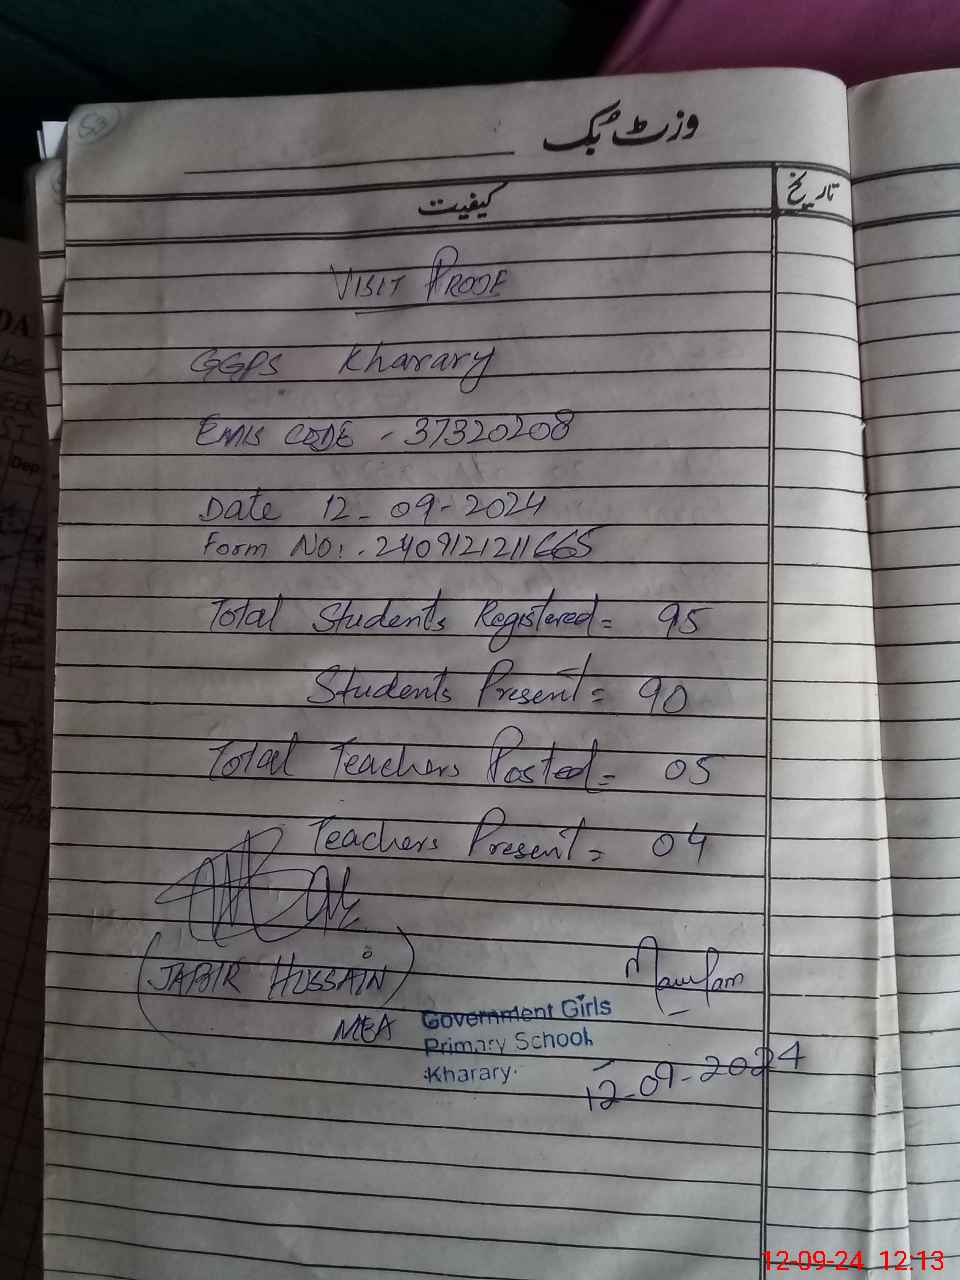 53
وزٹ بُک
کیفیت
تاریخ
VISIT PROOF
GGPS Kharary
EMIS CODE - 37320208
Date 12-09-2024
Form NO:. 2409121211665
Total Students Registered = 95
Students Present = 90
Total Teachers Posted = 05
Teachers Present = 04
(JABIR HUSSAIN)
MEA
Government Girls
Primary School
Kharary.
12-09-2024
12-09-24 12:13